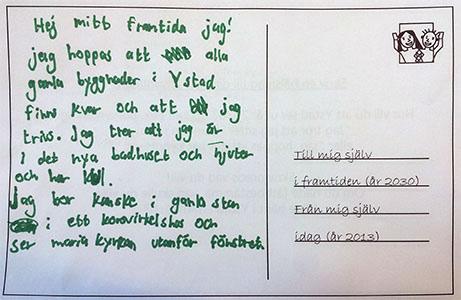 Hej mitt framtida jag!
jag hoppas att alla
gamla byggnader i Ystad
finns kvar och att jag
trivs. Jag tror att jag är
i det nya badhuset och njuter
och har kul.
Jag bor kanske i gamla stan
i ett korsvirkelshus och
ser maria kyrkan utanför fönstret.
Till mig själv
i framtiden (år 2030)
Från mig själv
idag (år 2013)